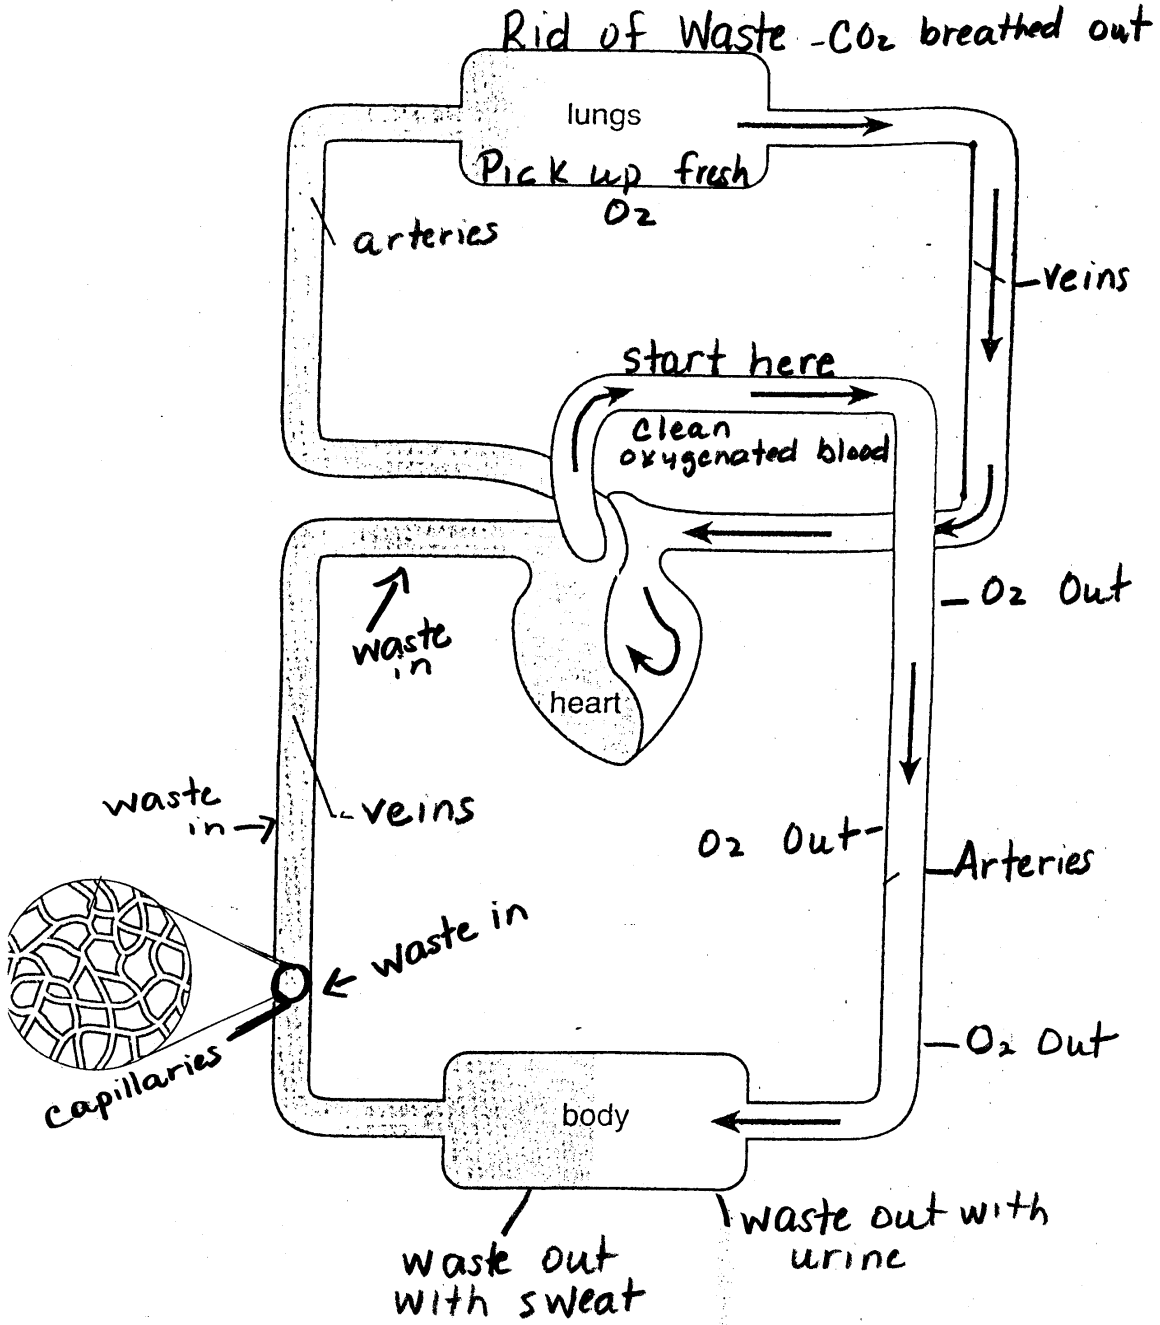 Rid of Waste - CO2 breathed out
lungs
Pick up fresh
O2
arteries
veins
start here
clean
oxygenated blood
O2 Out
waste
in
heart
waste
in
veins
O2 Out
Arteries
waste in
capillaries
O2 Out
body
waste out with
urine
waste out
with sweat